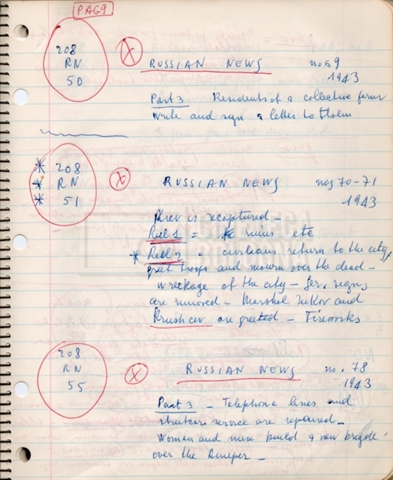 PAG 9
208
RN
50
X
RUSSIAN NEWS no 59
1943
Part 3 Residents of a collective farm
write and sign a letter to Stalin
208
RN
51
X
RUSSIAN NEWS nos 70-71
1943
Kiev is recaptured -
Reel 1 = ruins etc
Reel 2 = civilians return to the city,
greet troops and mourn over the dead -
wreckage of the city - Ger. signs
are removed - Marshal Zukov and
Krushcev are greeted - Fireworks
208
RN
55
X
RUSSIAN NEWS no. 78
1943
Part 3 - Telephone lines and
streetcar service are repaired -
Women and men build a new brigde
over the Dnieper -